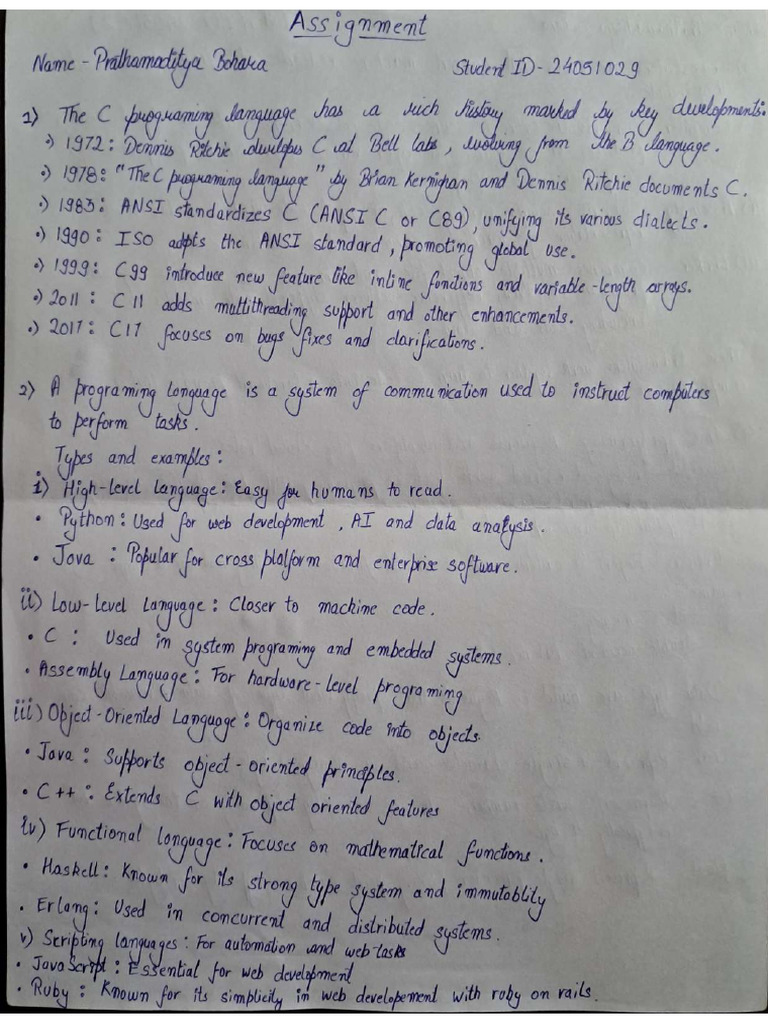 Assignment
Name - Prathamaditya Behara Student ID - 24051029
1) The C programing language has a rich history marked by key developments:
•) 1972: Dennis Ritchie develops C at Bell labs, evolving from the B language.
•) 1978: "The C programing language" by Brian Kernighan and Dennis Ritchie documents C.
•) 1983: ANSI standardizes C (ANSI C or C89), unifying its various dialects.
•) 1990: ISO adpts the ANSI standard, promoting global use.
•) 1999: C99 introduce new feature like inline functions and variable-length arrays.
•) 2011: C11 adds multithreading support and other enhancements.
•) 2017: C17 focuses on bugs fixes and clarifications.
2) A programing language is a system of communication used to instruct computers
to perform tasks.
Types and examples:
i) High-level language: Easy for humans to read.
• Python: Used for web development, AI and data analysis.
• Java: Popular for cross platform and enterprise software.
ii) Low-Level Language: Closer to machine code.
• C: Used in system programing and embedded systems.
• Assembly Language: For hardware-level programing
iii) Object-Oriented Language: Organize code into objects.
• Java: Supports object-oriented principles.
• C++: Extends C with object oriented features
iv) Functional language: Focuses on mathematical functions.
• Haskell: Known for its strong type system and immutablity
• Erlang: Used in concurrent and distributed systems.
v) Scripting languages: For automation and web tasks
• JavaScript: Essential for web development
• Ruby: Known for its simplicity in web developement with roby on rails.